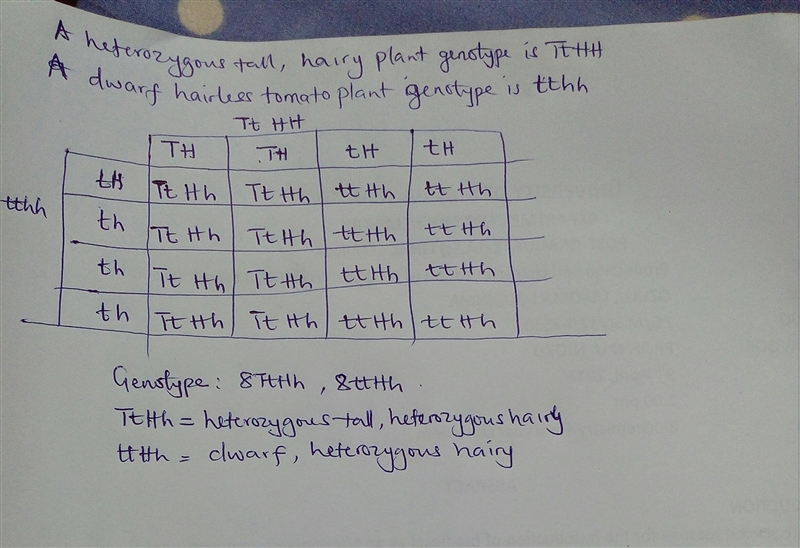 A heterozygous tall, hairy plant genotype is TtHH
A dwarf hairless tomato plant genotype is tthh
Tt HH
TH TH tH tH
tthh
tH Tt Hh Tt Hh tt Hh tt Hh
th Tt Hh Tt Hh tt Hh tt Hh
th Tt Hh Tt Hh tt Hh tt Hh
th Tt Hh Tt Hh tt Hh tt Hh
Genotype: 8TtHh, 8ttHh.
TtHh = heterozygous tall, heterozygous hairy
ttHh = dwarf, heterozygous hairy